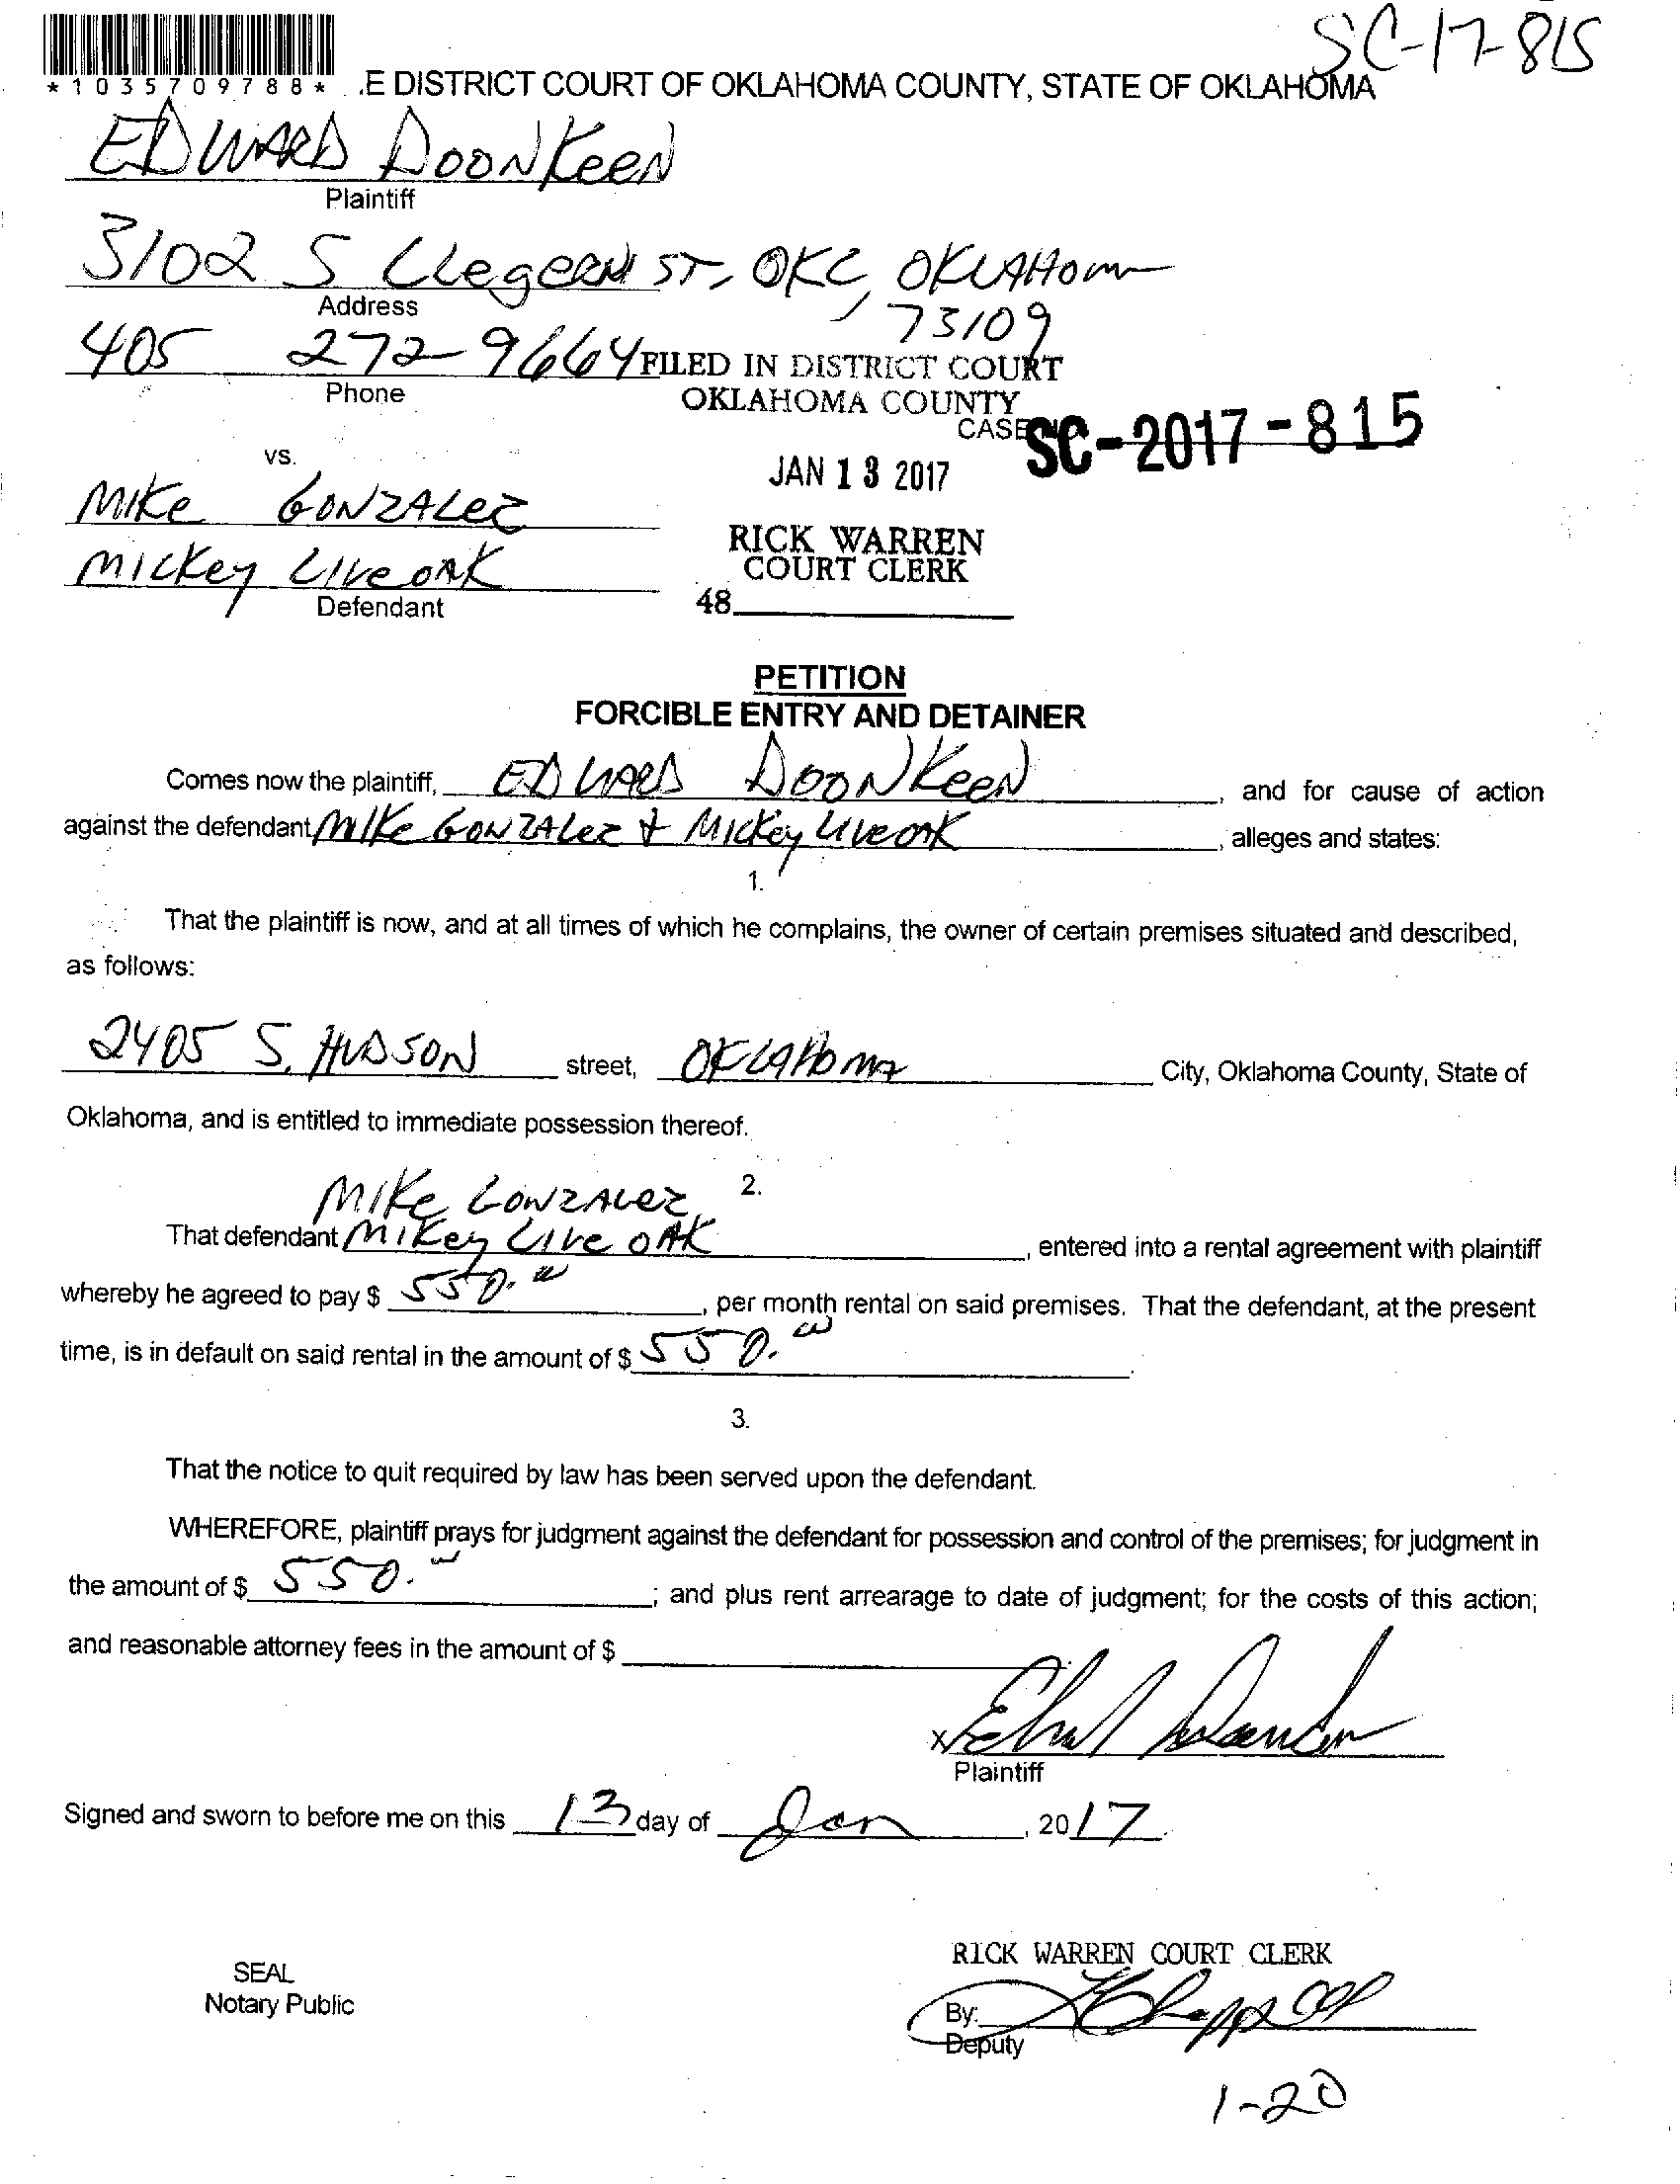 SC-17-815
*1035709788* .E DISTRICT COURT OF OKLAHOMA COUNTY, STATE OF OKLAHOMA
EDWARD DOONKEEN
Plaintiff
3102 S CLegeRN ST, OKC, OKLAHOMA
Address
73109
405 272-9664 FILED IN DISTRICT COURT
Phone
OKLAHOMA COUNTY
CASE SC-2017-815
vs.
JAN 13 2017
MIKe GONZALez
RICK WARREN
COURT CLERK
MICKey LIVeOAK
Defendant
48
PETITION
FORCIBLE ENTRY AND DETAINER
Comes now the plaintiff, EDWARD DOONKeeN, and for cause of action
against the defendant MIKe GONZALez & MICKey LIVeOAK, alleges and states:
1.
That the plaintiff is now, and at all times of which he complains, the owner of certain premises situated and described,
as follows:
2405 S. HUDSON street, OKLAHOMA City, Oklahoma County, State of
Oklahoma, and is entitled to immediate possession thereof.
2.
MIKe GONZALez
That defendant MIKey LIVe OAK, entered into a rental agreement with plaintiff
whereby he agreed to pay $ 550.00, per month rental on said premises. That the defendant, at the present
time, is in default on said rental in the amount of $ 550.00.
3.
That the notice to quit required by law has been served upon the defendant.
WHEREFORE, plaintiff prays for judgment against the defendant for possession and control of the premises; for judgment in
the amount of $ 550.00; and plus rent arrearage to date of judgment; for the costs of this action;
and reasonable attorney fees in the amount of $
X
Plaintiff
Signed and sworn to before me on this 13 day of Jan, 2017.
RICK WARREN COURT CLERK
SEAL
Notary Public
By:
Deputy
1-20